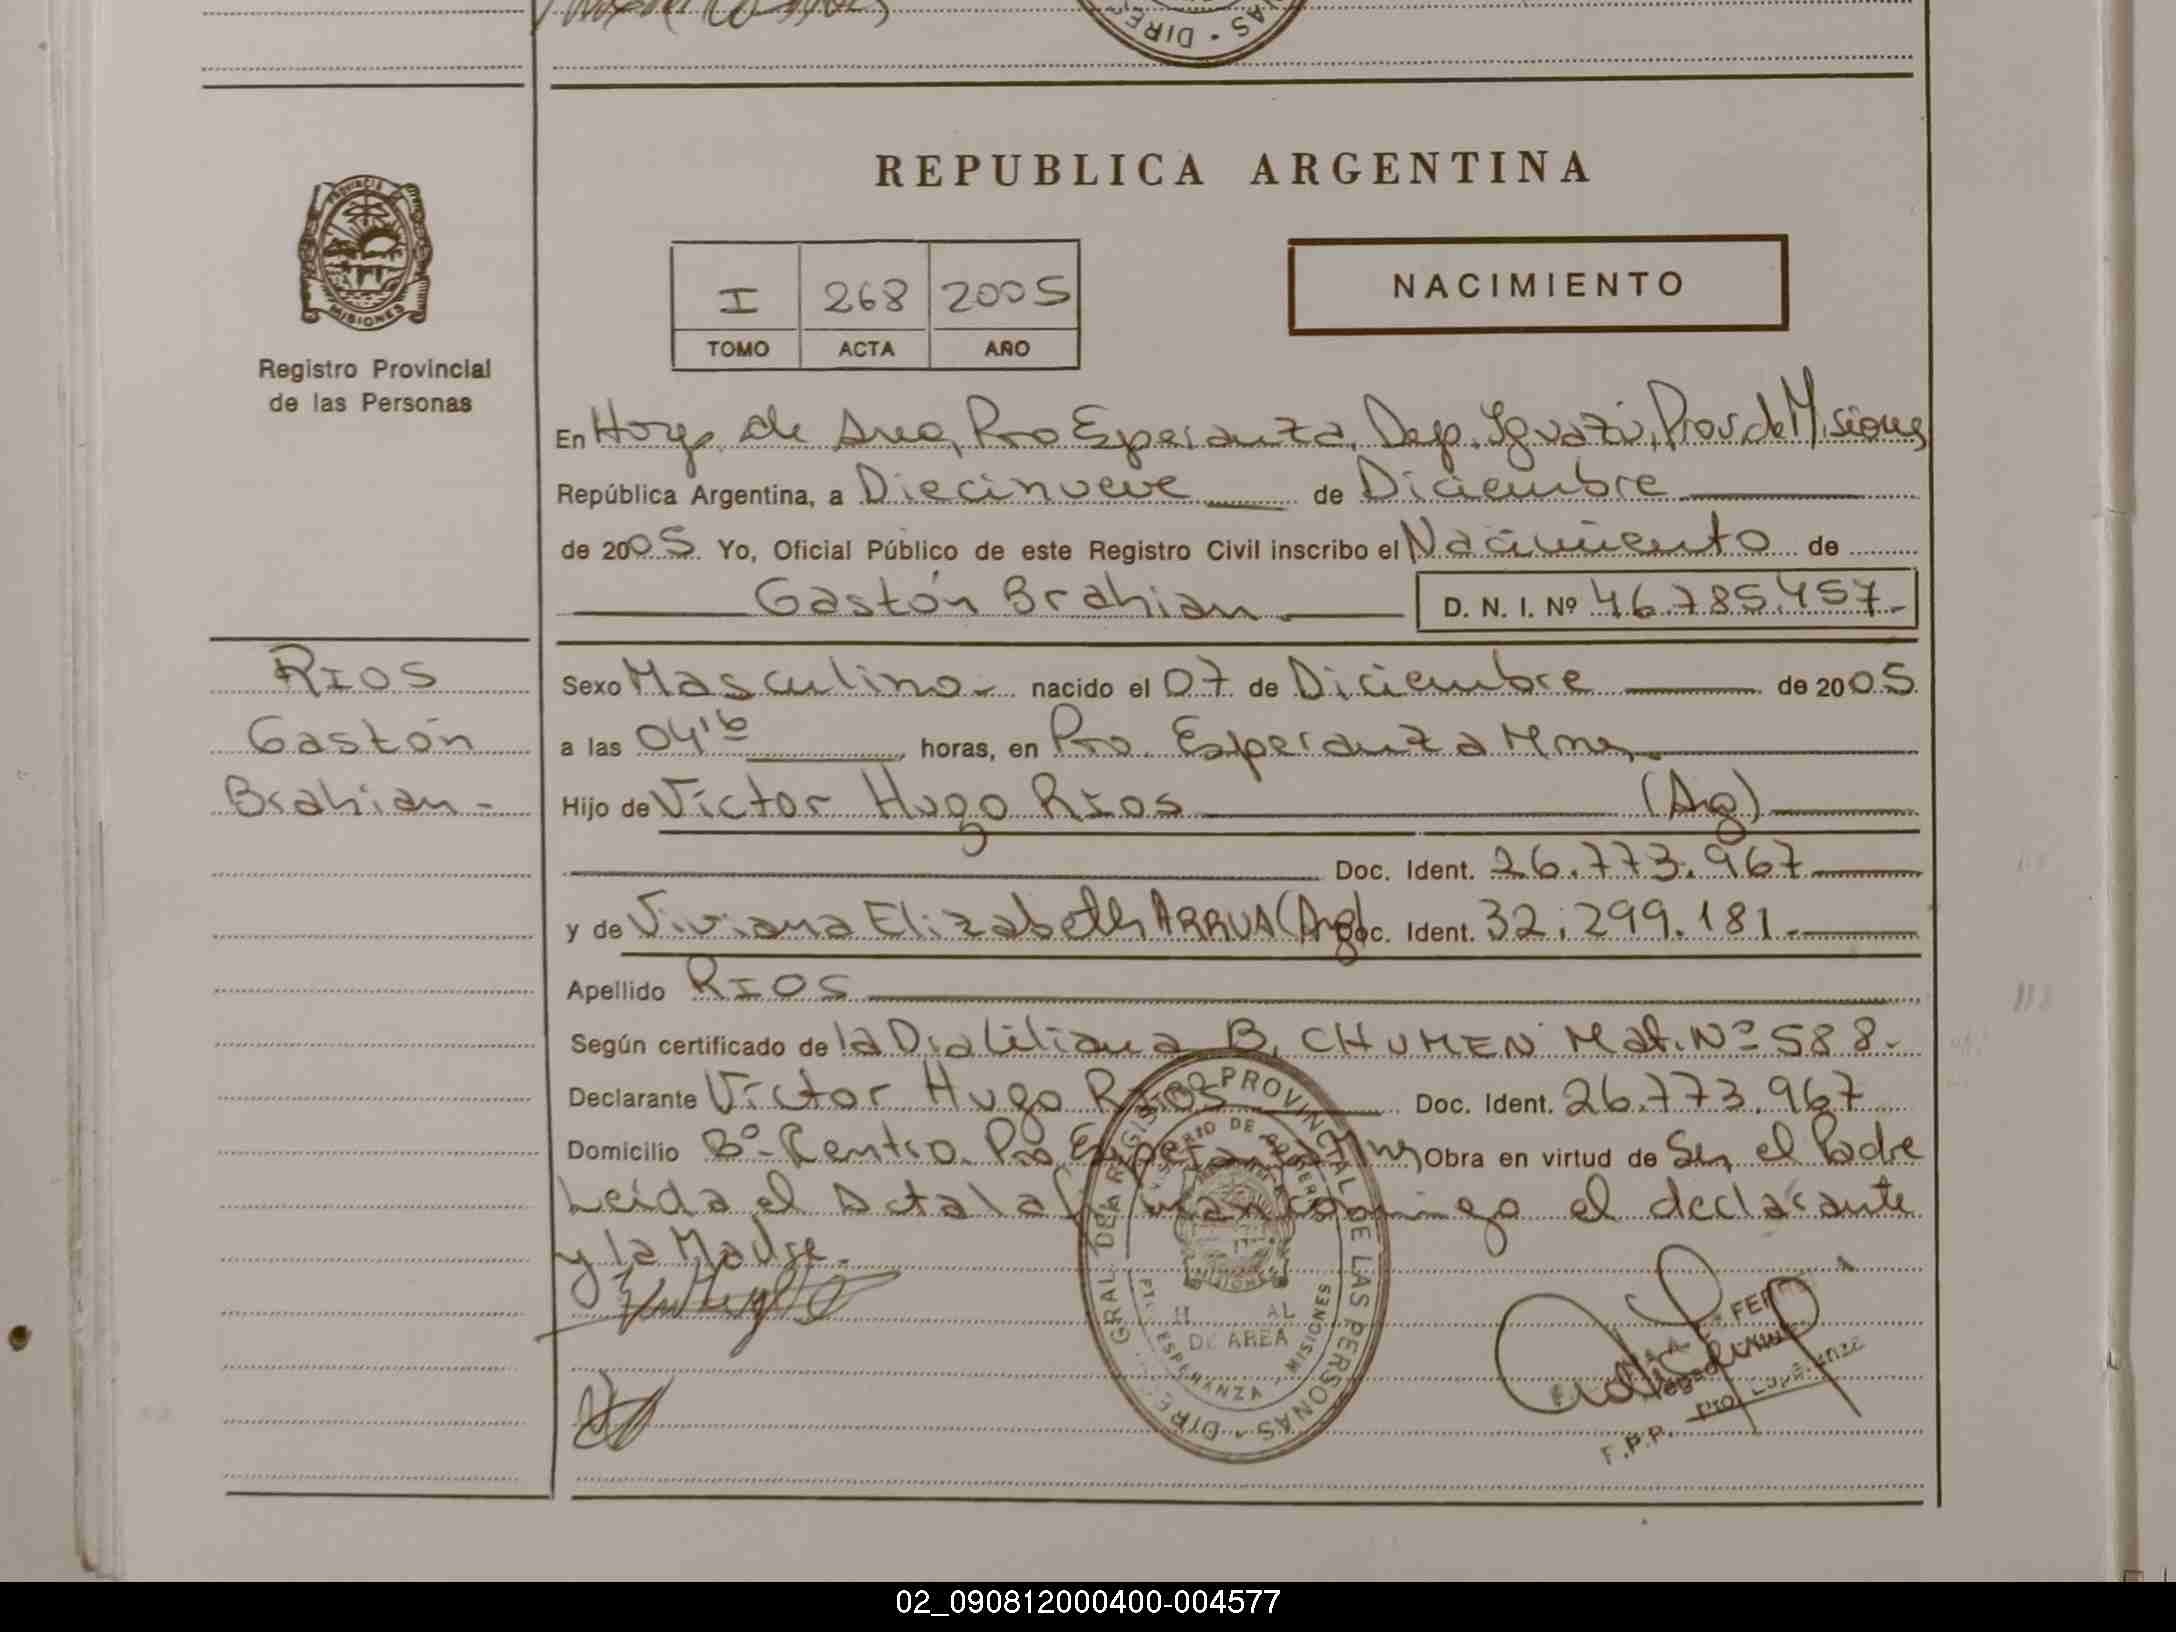 REPUBLICA ARGENTINA
PROVINCIA DE
MISIONES
Registro Provincial
de las Personas
I 268 2005
TOMO ACTA AÑO
NACIMIENTO
En Hosp. de Area, Pto Esperanza, Dep. Iguazú, Prov. de Misiones
República Argentina, a Diecinueve de Diciembre
de 2005 Yo, Oficial Público de este Registro Civil inscribo el Nacimiento de
Gastón Brahian D. N. I. Nº 46.785.457.-
RIOS
Gastón
Brahian -
Sexo Masculino nacido el 07 de Diciembre de 2005
a las 04'16 horas, en Pto. Esperanza Mnes
Hijo de Víctor Hugo RIOS (Arg)
Doc. Ident. 26.773.967
y de Viviana Elizabeth ARRUA (Arg) Doc. Ident. 32.299.181.-
Apellido RIOS
Según certificado de la Dra Liliana B. CHUMEN Mat. Nº 588.-
Declarante Víctor Hugo RIOS Doc. Ident. 26.773.967
Domicilio Bº Centro. Pto Esperanza Mnes Obra en virtud de Ser el Padre
Leída el Acta la firman conmigo el declarante
y la Madre.
DIREC. GRAL. DE REGISTRO PROVINCIAL DE LAS PERSONAS
MINISTERIO DE GOBIERNO
DE AREA
PTO. ESPERANZA - MISIONES
F.P.P.
02_090812000400-004577